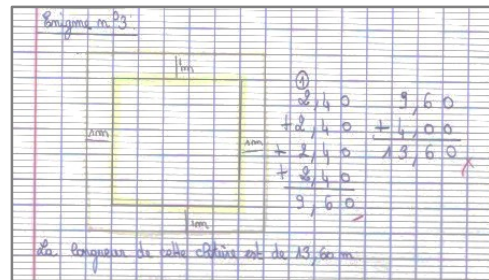 Enigme n°3
1m
①
2,40
+2,40
+2,40
+2,40
9,60
9,60
+4,00
13,60
1m
1m
1m
La longueur de cette clôture est de 13,60 m